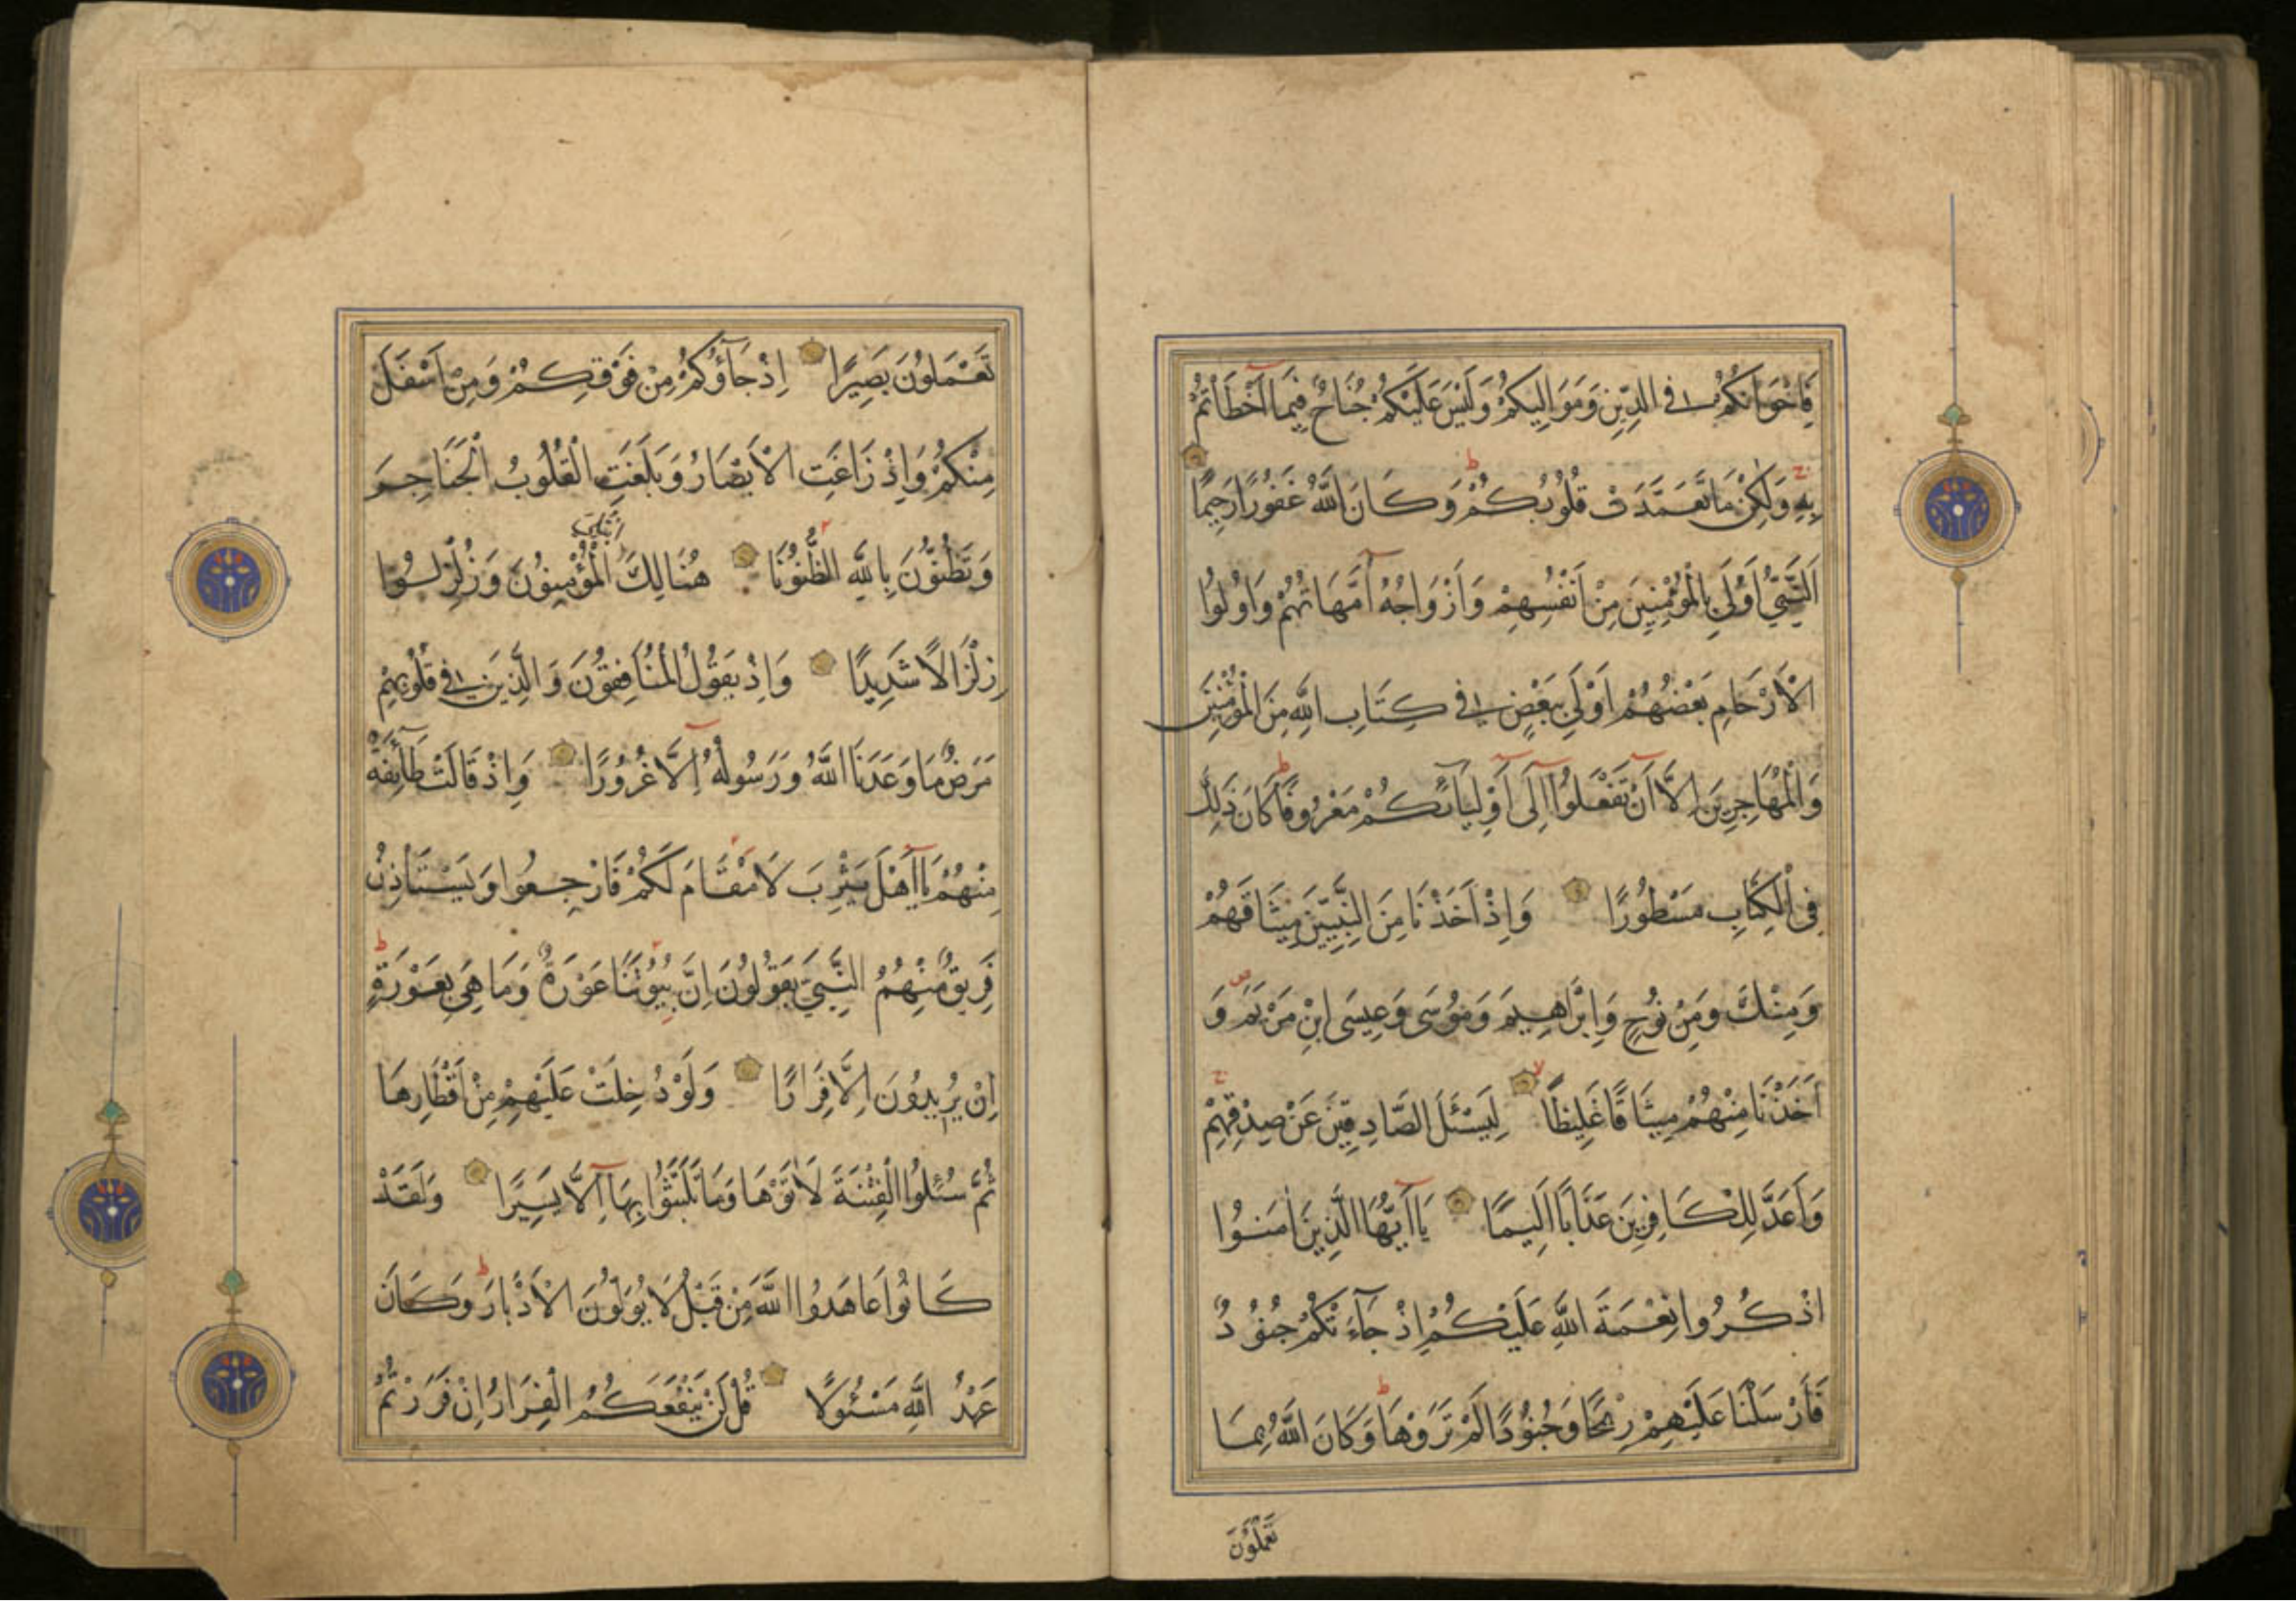 فَاِخْوَانُكُمْ فِي الدِّينِ وَمَوَالِيكُمْ وَلَيْسَ عَلَيْكُمْ جُنَاحٌ فِيمَا اَخْطَأْتُمْ
بِهِ وَلٰكِنْ مَا تَعَمَّدَتْ قُلُوبُكُمْ وَكَانَ اللّٰهُ غَفُورًا رَحِيمًا
اَلنَّبِيُّ اَوْلَى بِالْمُؤْمِنِينَ مِنْ اَنْفُسِهِمْ وَاَزْوَاجُهُ اُمَّهَاتُهُمْ وَاُولُوا
الْاَرْحَامِ بَعْضُهُمْ اَوْلَى بِبَعْضٍ فِي كِتَابِ اللّٰهِ مِنَ الْمُؤْمِنِينَ
وَالْمُهَاجِرِينَ اِلَّا اَنْ تَفْعَلُوا اِلَى اَوْلِيَائِكُمْ مَعْرُوفًا كَانَ ذَلِكَ
فِي الْكِتَابِ مَسْطُورًا وَاِذْ اَخَذْنَا مِنَ النَّبِيِّينَ مِيثَاقَهُمْ
وَمِنْكَ وَمِنْ نُوحٍ وَاِبْرَاهِيمَ وَمُوسَى وَعِيسَى ابْنِ مَرْيَمَ وَ
اَخَذْنَا مِنْهُمْ مِيثَاقًا غَلِيظًا لِيَسْئَلَ الصَّادِقِينَ عَنْ صِدْقِهِمْ
وَاَعَدَّ لِلْكَافِرِينَ عَذَابًا اَلِيمًا يَا اَيُّهَا الَّذِينَ اٰمَنُوا
اذْكُرُوا نِعْمَةَ اللّٰهِ عَلَيْكُمْ اِذْ جَآءَتْكُمْ جُنُودٌ
فَاَرْسَلْنَا عَلَيْهِمْ رِيحًا وَجُنُودًا لَمْ تَرَوْهَا وَكَانَ اللّٰهُ بِمَا
تَعْمَلُونَ
تَعْمَلُونَ بَصِيرًا اِذْ جَآؤُكُمْ مِنْ فَوْقِكُمْ وَمِنْ اَسْفَلَ
مِنْكُمْ وَاِذْ زَاغَتِ الْاَبْصَارُ وَبَلَغَتِ الْقُلُوبُ الْحَنَاجِرَ
وَتَظُنُّونَ بِاللّٰهِ الظُّنُونَا هُنَالِكَ ابْتُلِيَ الْمُؤْمِنُونَ وَزُلْزِلُوا
زِلْزَالًا شَدِيدًا وَاِذْ يَقُولُ الْمُنَافِقُونَ وَالَّذِينَ فِي قُلُوبِهِمْ
مَرَضٌ مَا وَعَدَنَا اللّٰهُ وَرَسُولُهُ اِلَّا غُرُورًا وَاِذْ قَالَتْ طَآئِفَةٌ
مِنْهُمْ يَا اَهْلَ يَثْرِبَ لَا مُقَامَ لَكُمْ فَارْجِعُوا وَيَسْتَأْذِنُ
فَرِيقٌ مِنْهُمُ النَّبِيَّ يَقُولُونَ اِنَّ بُيُوتَنَا عَوْرَةٌ وَمَا هِيَ بِعَوْرَةٍ
اِنْ يُرِيدُونَ اِلَّا فِرَارًا وَلَوْ دُخِلَتْ عَلَيْهِمْ مِنْ اَقْطَارِهَا
ثُمَّ سُئِلُوا الْفِتْنَةَ لَاٰتَوْهَا وَمَا تَلَبَّثُوا بِهَا اِلَّا يَسِيرًا وَلَقَدْ
كَانُوا عَاهَدُوا اللّٰهَ مِنْ قَبْلُ لَا يُوَلُّونَ الْاَدْبَارَ وَكَانَ
عَهْدُ اللّٰهِ مَسْئُولًا قُلْ لَنْ يَنْفَعَكُمُ الْفِرَارُ اِنْ فَرَرْتُمْ